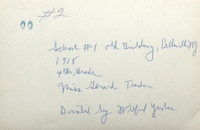 #2
School #1 old Building, Belleville NJ
1918
4th Grade
Miss Gerard Teacher
Donated by Wilfred Yudin